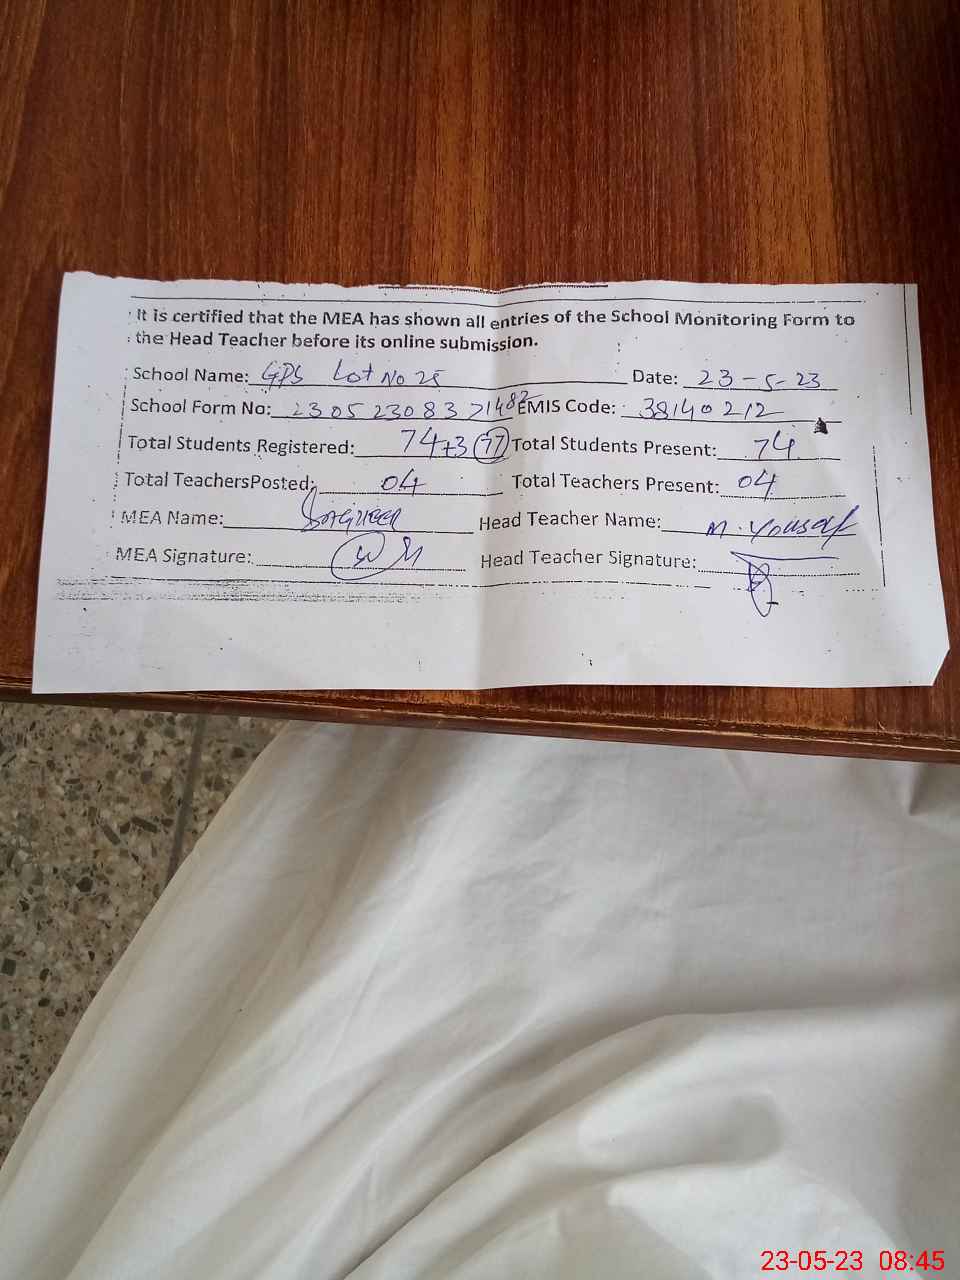 It is certified that the MEA has shown all entries of the School Monitoring Form to
the Head Teacher before its online submission.
School Name: GPS Lot No 25 Date: 23-5-23
School Form No: 2305230837148 EMIS Code: 38140212
Total Students Registered: 74+3 (77) Total Students Present: 74
Total TeachersPosted: 04 Total Teachers Present: 04
MEA Name: Head Teacher Name: M. Yousaf
MEA Signature: Head Teacher Signature:
23-05-23 08:45